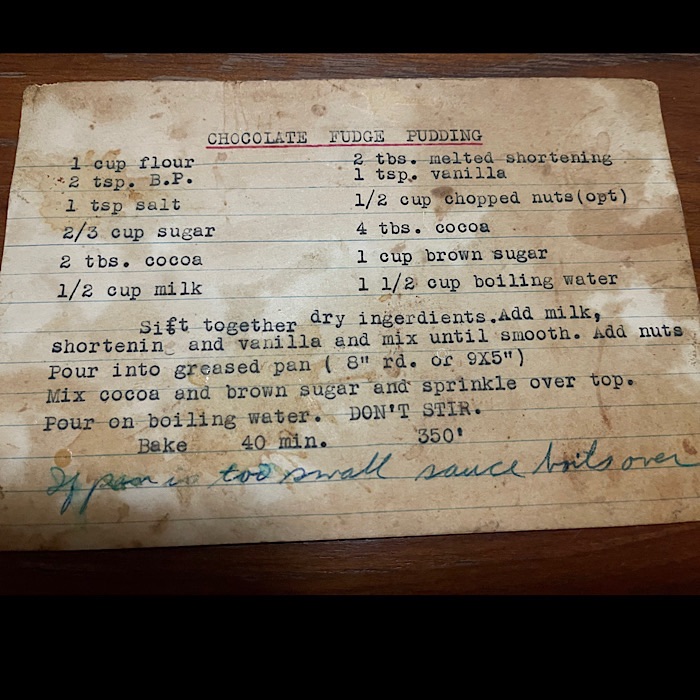 CHOCOLATE FUDGE PUDDING
1 cup flour 2 tbs. melted shortening
2 tsp. B.P. 1 tsp. vanilla
1 tsp salt 1/2 cup chopped nuts(opt)
2/3 cup sugar 4 tbs. cocoa
2 tbs. cocoa 1 cup brown sugar
1/2 cup milk 1 1/2 cup boiling water
Sift together dry ingerdients.Add milk,
shortenin and vanilla and mix until smooth. Add nuts
Pour into greased pan ( 8" rd. or 9X5")
Mix cocoa and brown sugar and sprinkle over top.
Pour on boiling water. DON'T STIR.
Bake 40 min. 350'
If pan is too small sauce boils over